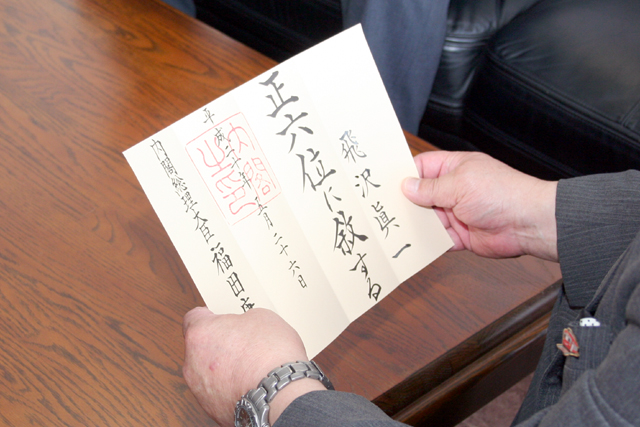 飛沢眞一
正六位に敘する
平成二十年五月二十六日
内閣之印
内閣総理大臣福田康